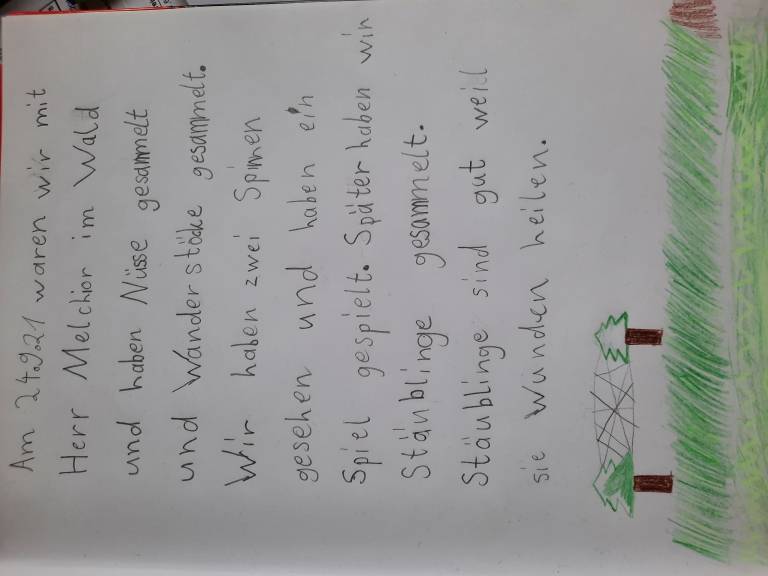 Am 24.9.21 waren wir mit
Herr Melchior im Wald
und haben Nüsse gesammelt
und Wanderstöcke gesammelt.
Wir haben zwei Spinnen
gesehen und haben ein
Spiel gespielt. Später haben wir
Stäublinge gesammelt.
Stäublinge sind gut weil
sie Wunden heilen.